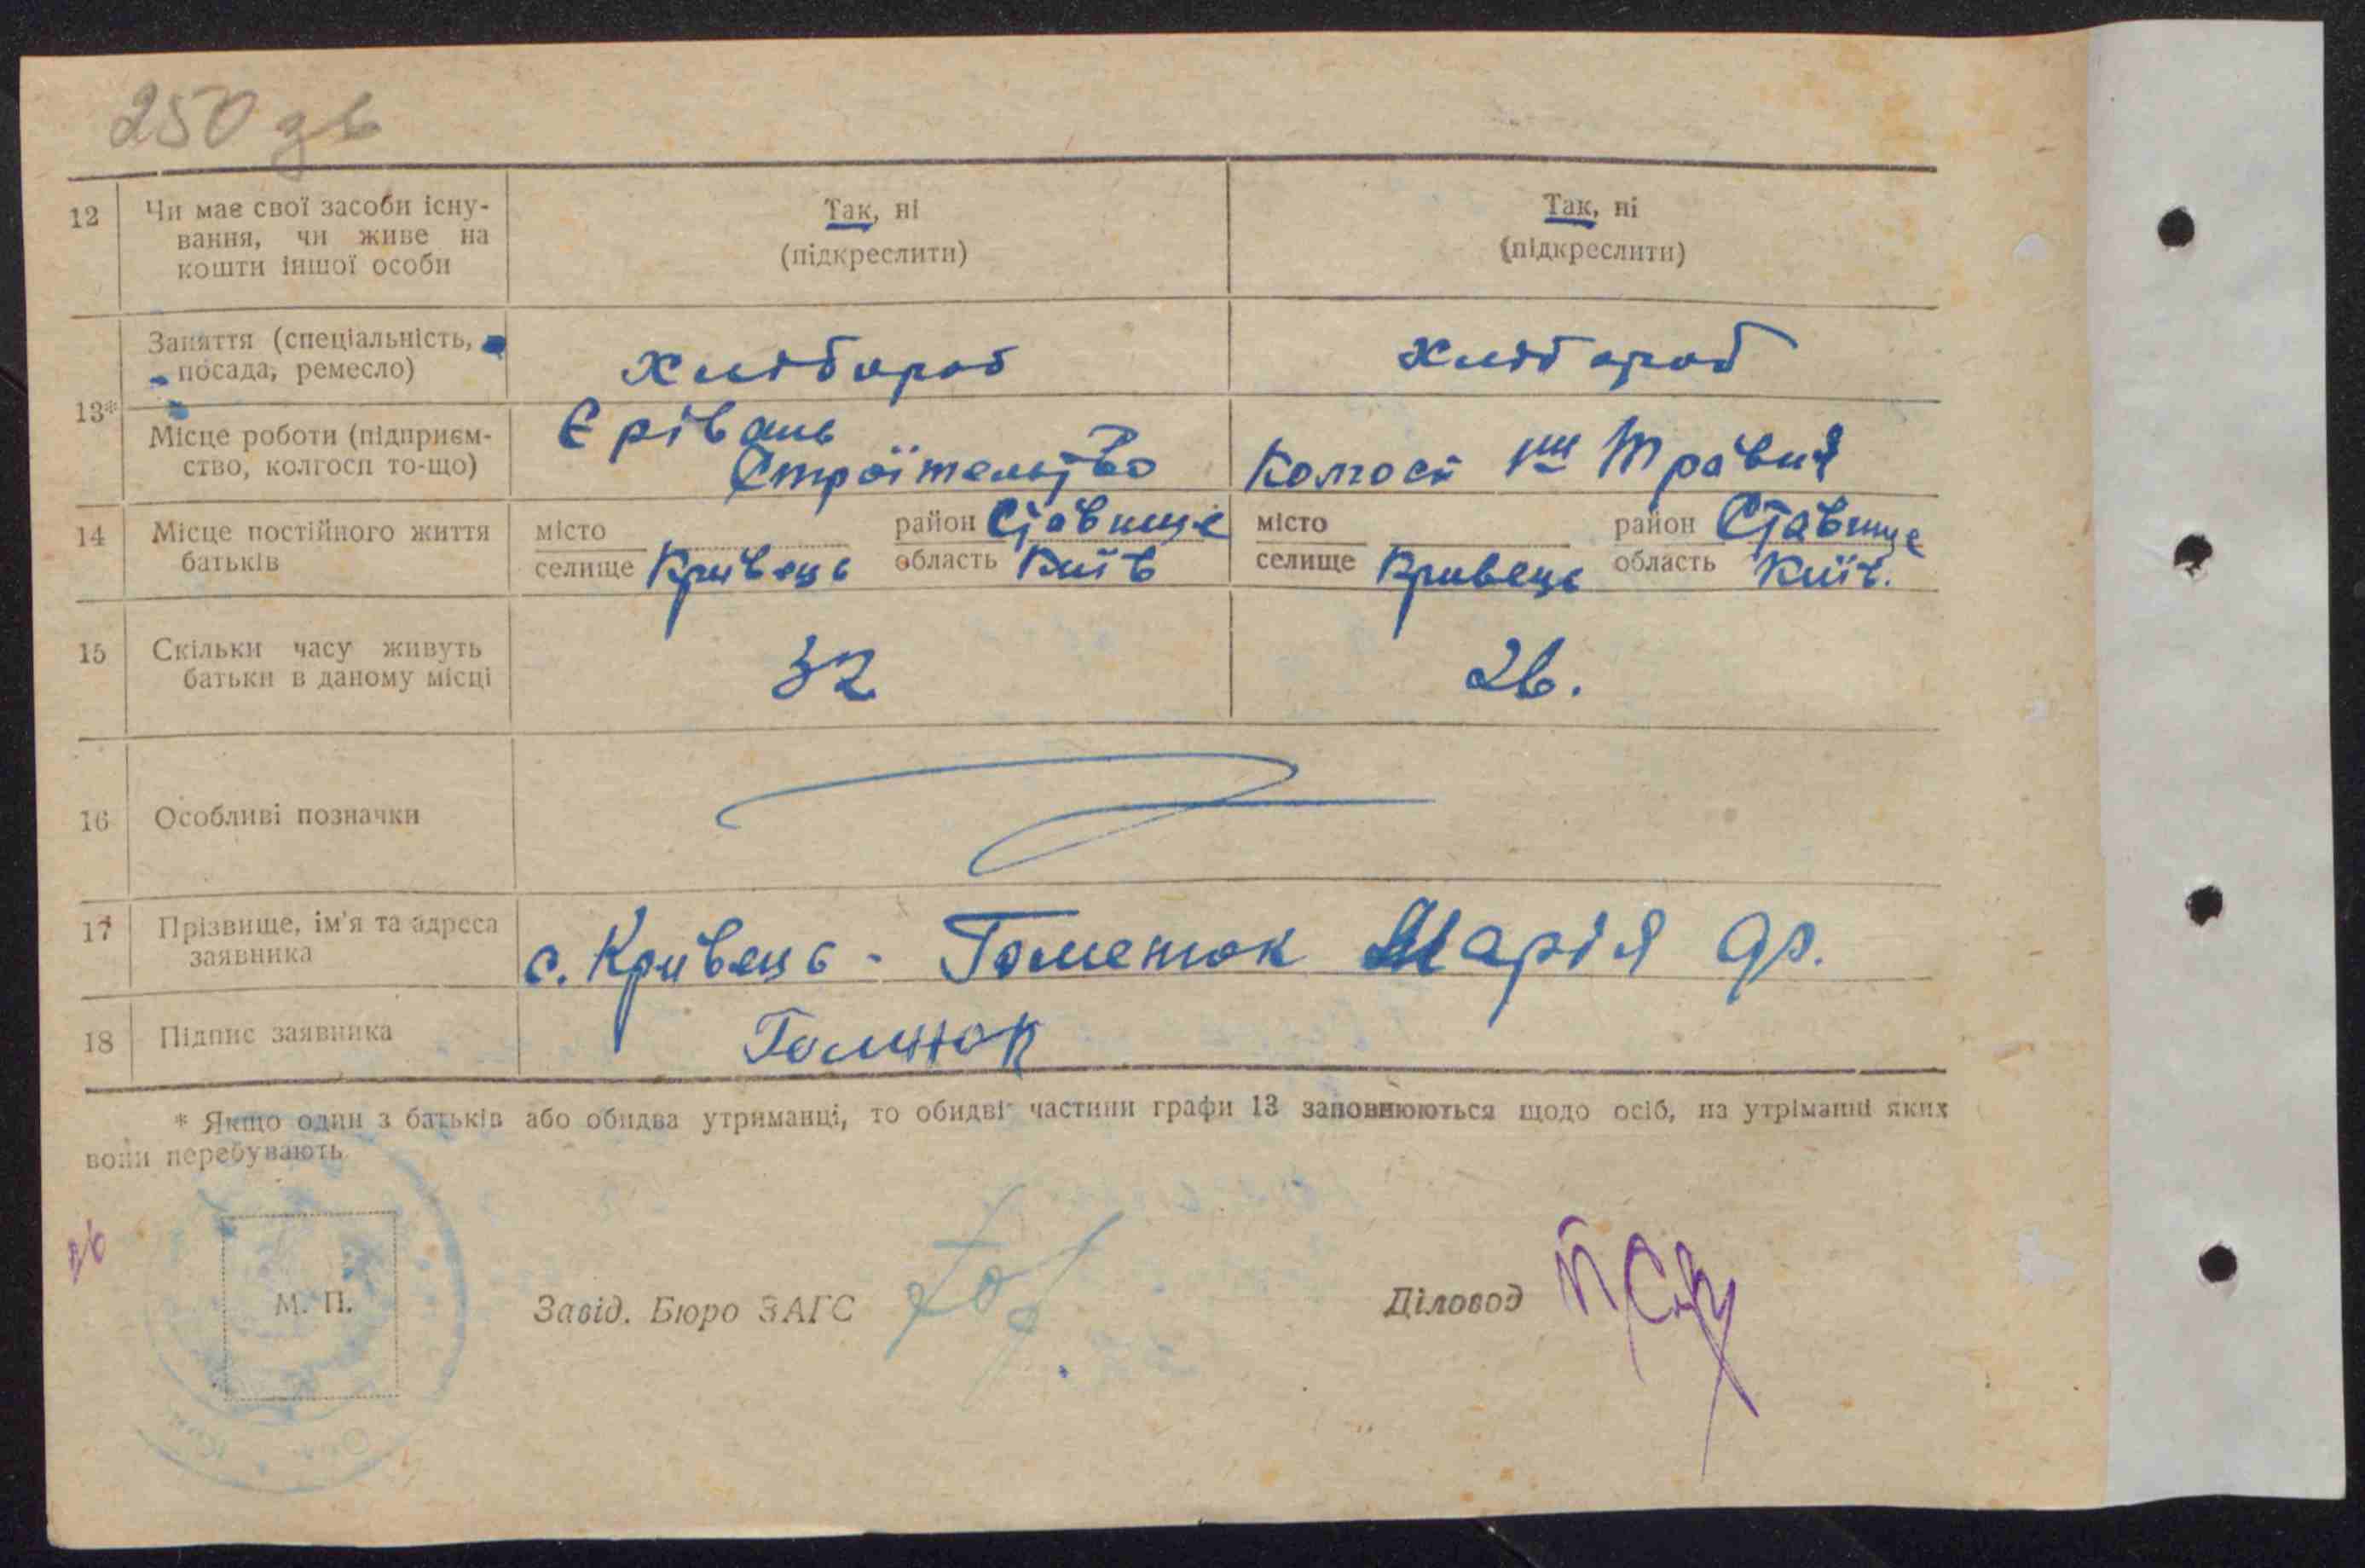 250 зв
12 Чи має свої засоби існу- Так, ні Так, ні
вання, чи живе на (підкреслити) (підкреслити)
кошти іншої особи
Заняття (спеціальність, хлібороб хлібороб
посада, ремесло)
13*
Місце роботи (підприєм- Єрівань Колгосп 1ш Травня
ство, колгосп то-що) Строїтельство
14 Місце постійного життя місто район Ставище місто район Ставище
батьків селище Кривець область Київ селище Кривець область Київ.
15 Скільки часу живуть 32 26.
батьки в даному місці
16 Особливі позначки
17 Прізвище, ім'я та адреса с. Кривець - Гоменюк Марія
заявника
18 Підпис заявника
* Якщо один з батьків або обидва утриманці, то обидві частини графи 13 заповнюються щодо осіб, на утріманні яких
вони перебувають
26
М. П. Завід. Бюро ЗАГС Діловод